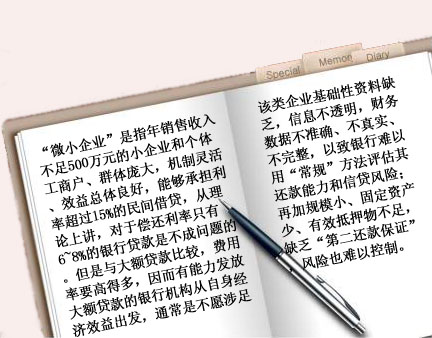 Special
Memon
Diary
“微小企业”是指年销售收入
不足500万元的小企业和个体
工商户、群体庞大，机制灵活
、效益总体良好，能够承担利
率超过15%的民间借贷，从理
论上讲，对于偿还利率只有
6~8%的银行贷款是不成问题的
。但是与大额贷款比较，费用
率要高得多，因而有能力发放
大额贷款的银行机构从自身经
济效益出发，通常是不愿涉足
该类企业基础性资料缺
乏，信息不透明，财务
数据不准确、不真实、
不完整，以致银行难以
用“常规”方法评估其
还款能力和信贷风险；
再加规模小、固定资产
少、有效抵押物不足，
缺乏“第二还款保证”
风险也难以控制。